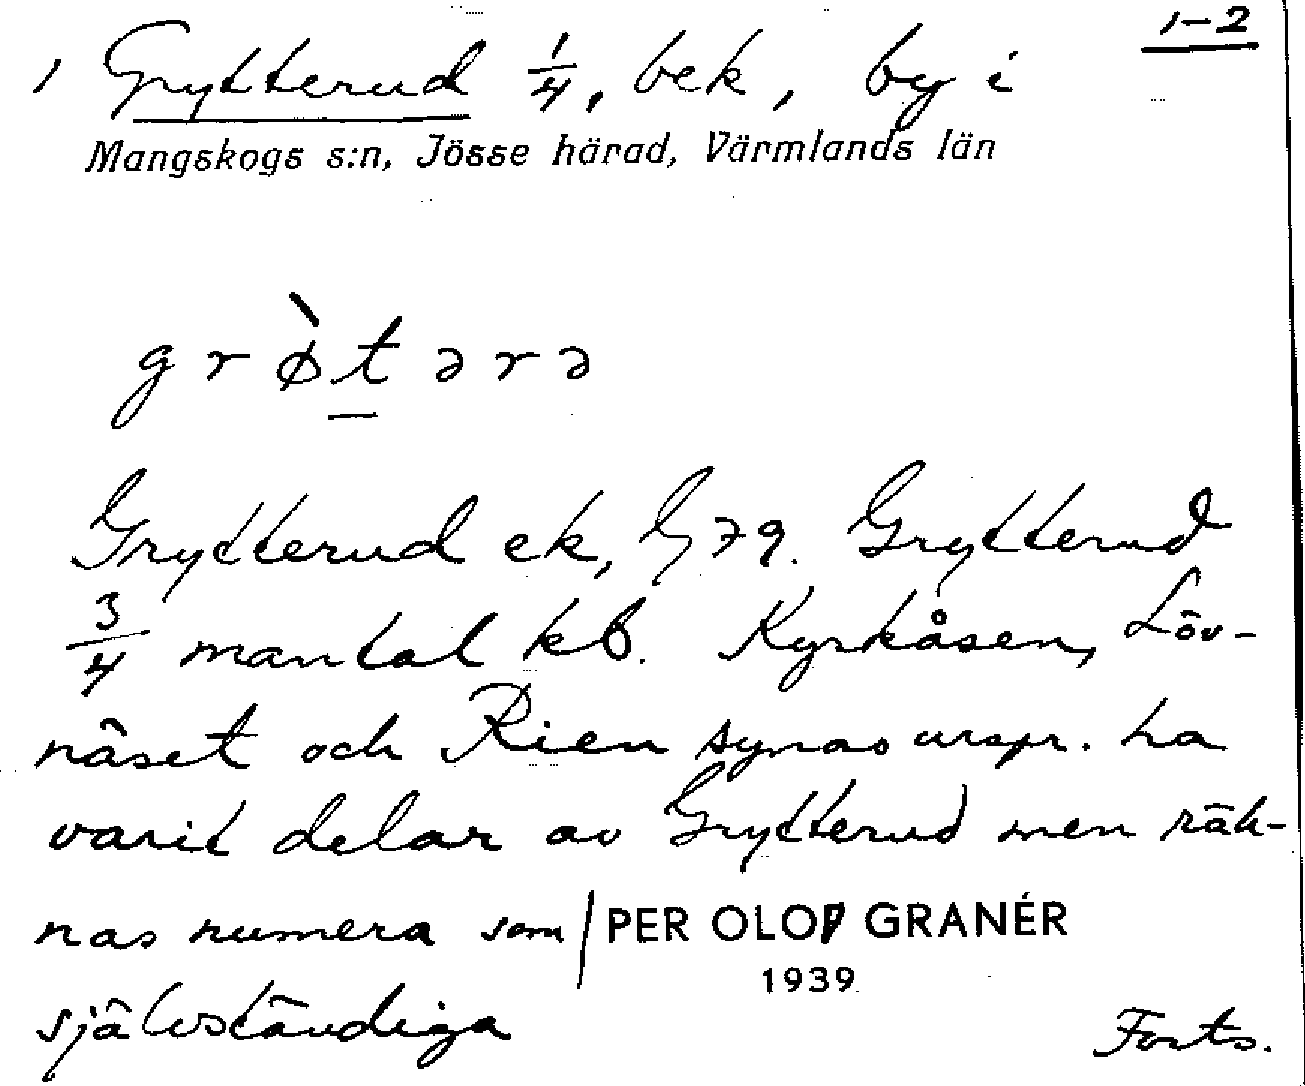 1-2
1 Grytterud 1/4, bek, by i
Mangskogs s:n, Jösse härad, Värmlands län
grø̀tərə
Grytterud ek, G79. Grytterud
3/4 mantal kb. Kyrkåsen, Löv-
näset och Rien synas urspr. ha
varit delar av Grytterud men räk-
nas numera som
PER OLOF GRANÉR
1939
självständiga
Forts.